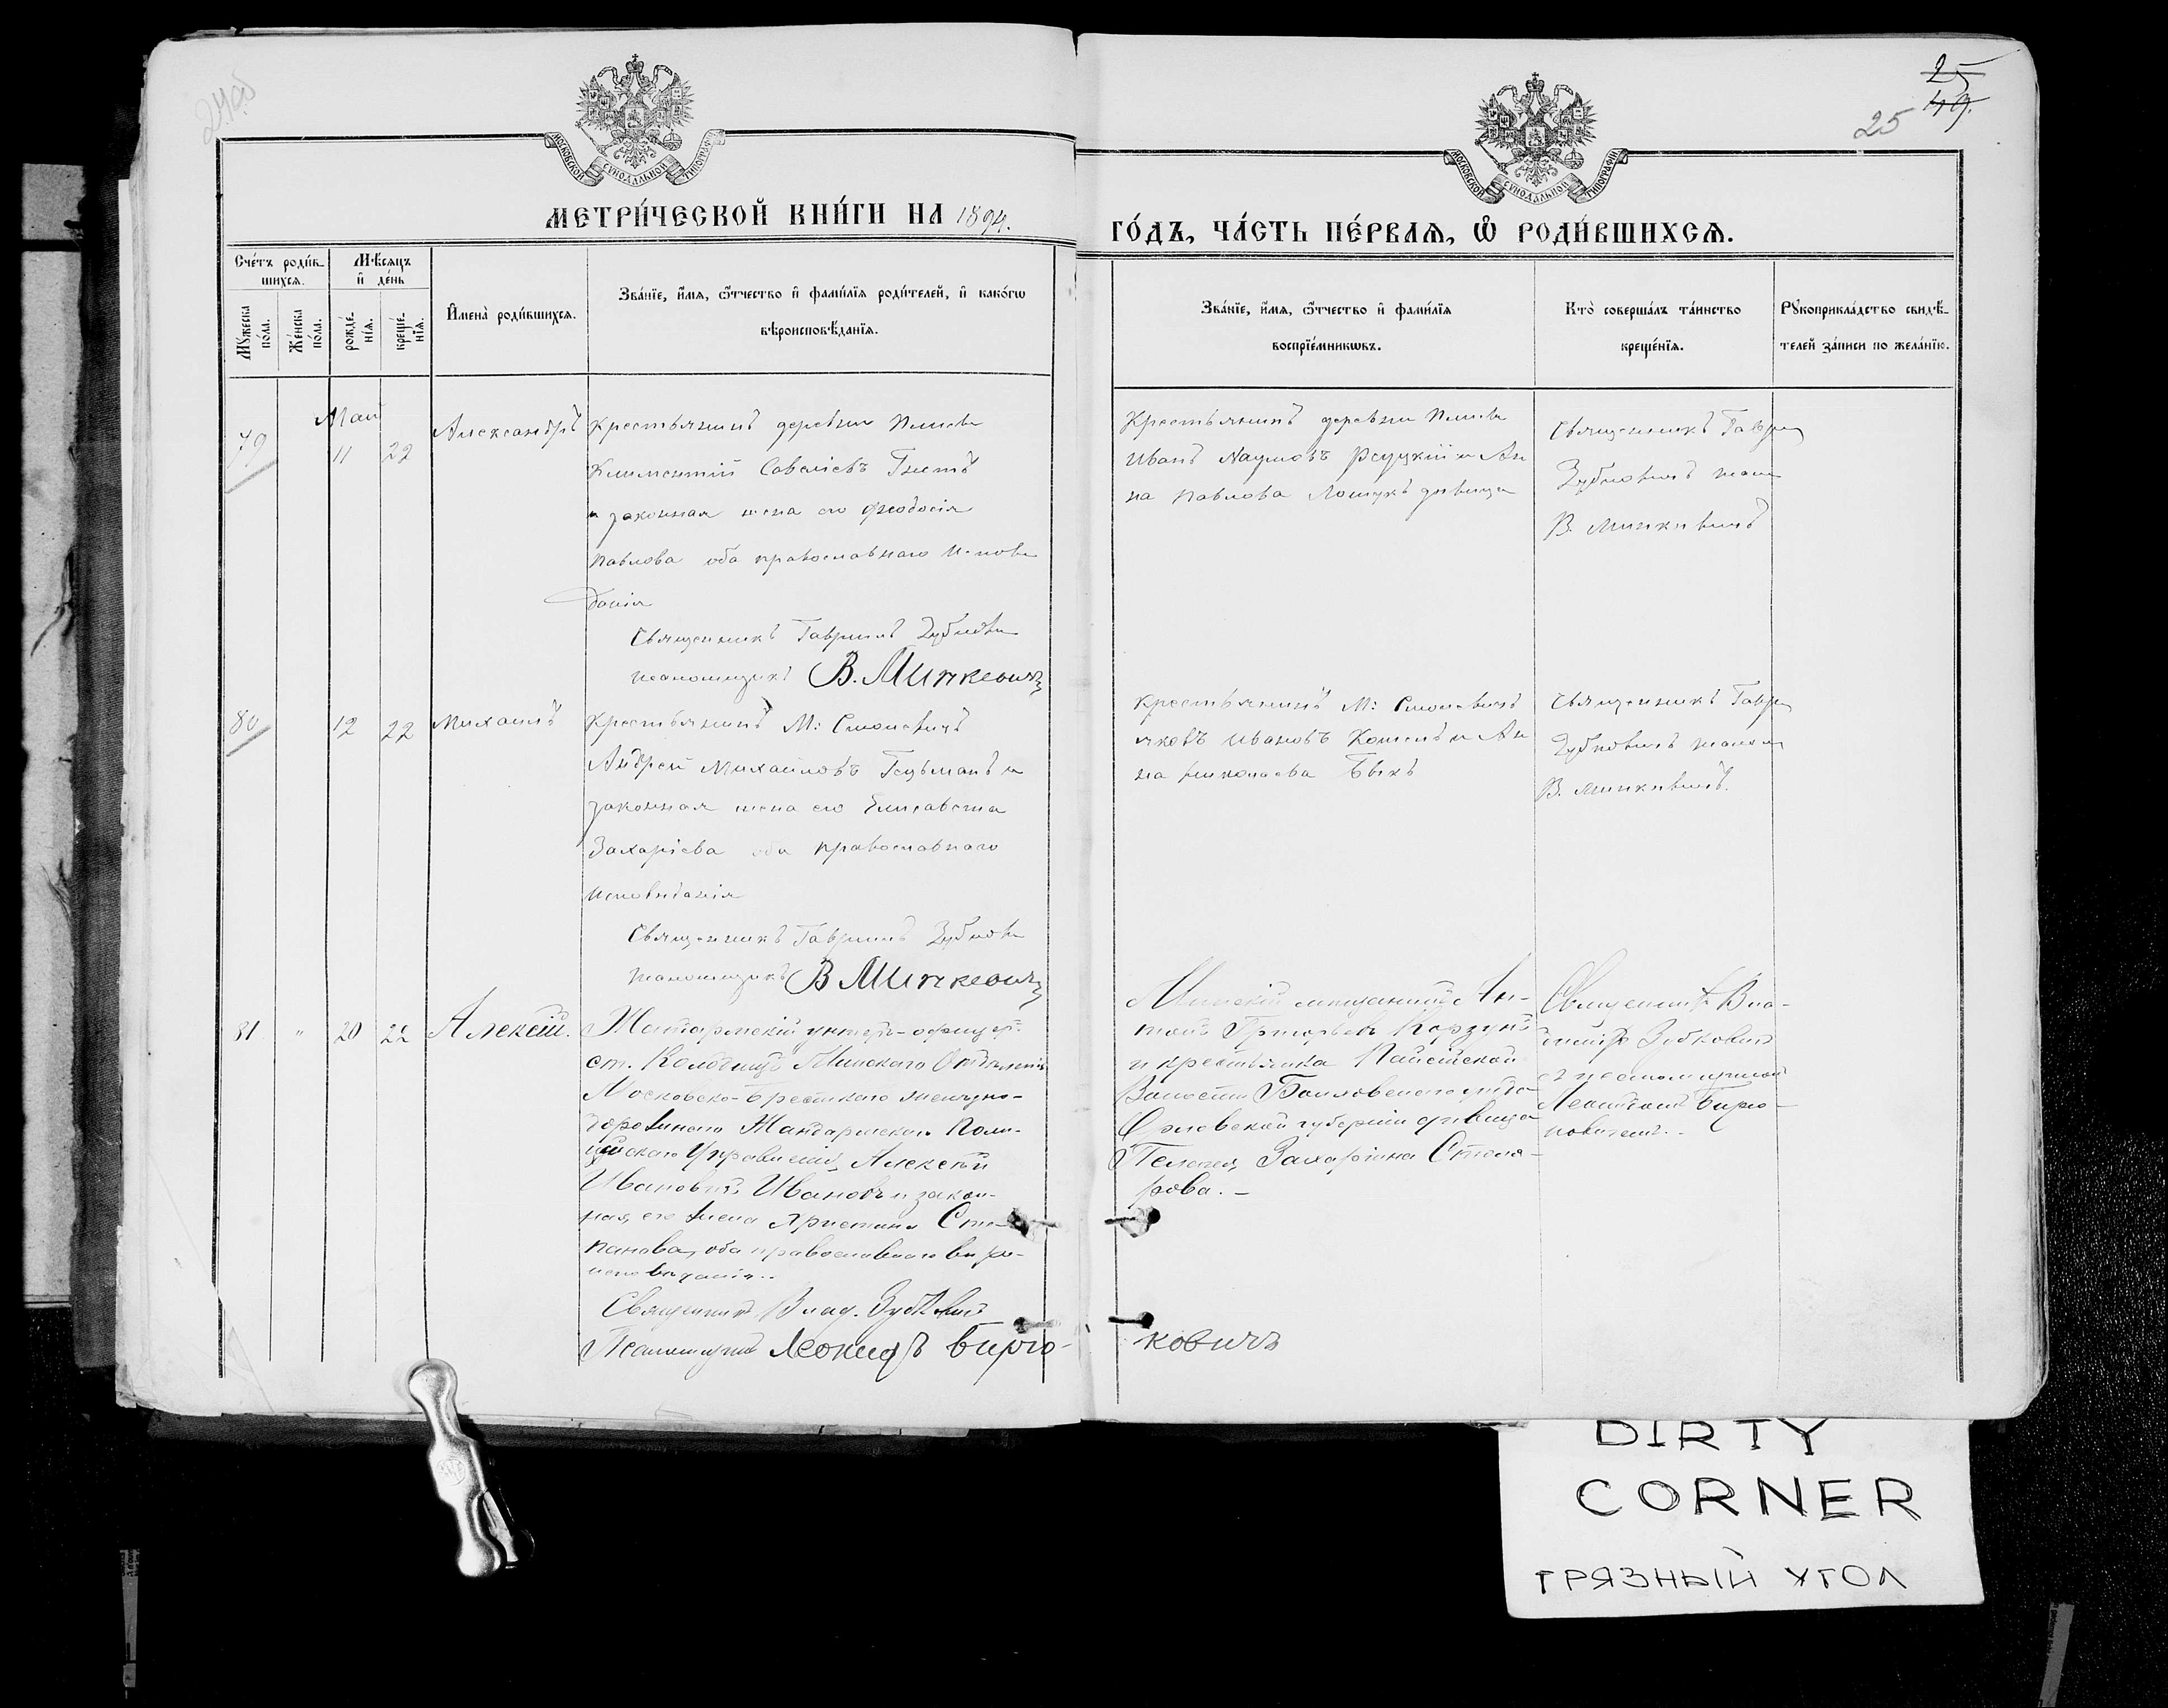 24об
25
49.
25
МОСКОВСКОЙ СУНОДАЛЬНОЙ ТИПОГРАФІИ
МОСКОВСКОЙ СУНОДАЛЬНОЙ ТИПОГРАФІИ
МЕТРИ́ЧЕСКОЙ КНИ́ГИ НА 1894.
ГО́ДЪ, ЧА́СТЬ ПЕ́РВАѦ, Ѡ҆ РОДИ́ВШИХСѦ.
Сче́тъ роди́в-
шихсѧ.
Мѣ́сѧцъ
и҆ де́нь
Мꙋ́жеска
по́ла.
Же́нска
по́ла.
рожде́-
нїѧ.
креще́-
нїѧ.
И҆мена̀ роди́вшихсѧ.
Зва́нїе, и҆́мѧ, ѻ҆́тчество и҆ фами́лїѧ роди́телей, и҆ како́гѡ
вѣроисповѣ́данїѧ.
Зва́нїе, и҆́мѧ, ѻ҆́тчество и҆ фами́лїѧ
воспрїе́мникѡвъ.
Кто̀ соверша́лъ та́инство
креще́нїѧ.
Рꙋкоприкла́дство свидѣ́-
телей за́писи по жела́нїю.
Май
79 11 22 Александръ
Крестьянинъ деревни
Климентій Савеліевъ
и законная жена его Феодосія
Павлова оба православнаго исповѣ
данія
Священникъ Гавріилъ Зубкови
псаломщикъ В. Минкевичъ
Крестьянинъ деревни
Иванъ Наумовъ и Ан
на Павлова дѣвица
Священникъ Гаврі
Зубковичъ псал
В. Минкевичъ
80 12 22 Михаилъ
Крестьянинъ М: Смолевичъ
Андрей Михайловъ и
законная жена его Елисавета
Захаріева оба православнаго
исповѣданія
Священникъ Гавріилъ Зубкови
псаломщикъ В Минкевичъ
Крестьянинъ М: Смолевичъ
Яковъ Ивановъ и Ан
на Николаева Быкъ
Священникъ Гаврі
Зубковичъ псалом
В. Минкевичъ.
81 " 20 22 Алексій.
Жандармскій унтеръ-офицеръ
ст. Колодищи Минскаго Отдѣленія
Московско-Брестскаго желѣзно-
дорожнаго Жандармскаго Поли-
цейскаго Управленія, Алексѣй
Ивановичъ Ивановъ и закон-
ная его жена Христина Сте-
панова, оба православнаго вѣро-
исповѣданія.
Священникъ Влад. Зубковичъ
Псаломщикъ Леонидъ Бирю-
ковичъ
Минскій мѣщанинъ Ан-
тонъ Григорьевъ Корзунъ
и крестьянка
Волости уѣзда
Орловской губерніи дѣвица
Пелагея Захаріина Столя-
рова. –
Священникъ Вла-
диміръ Зубковичъ
съ псаломщикомъ
Леонидомъ Бирю-
ковичемъ. –
DIRTY
CORNER
ГРЯЗНЫЙ УГОЛ